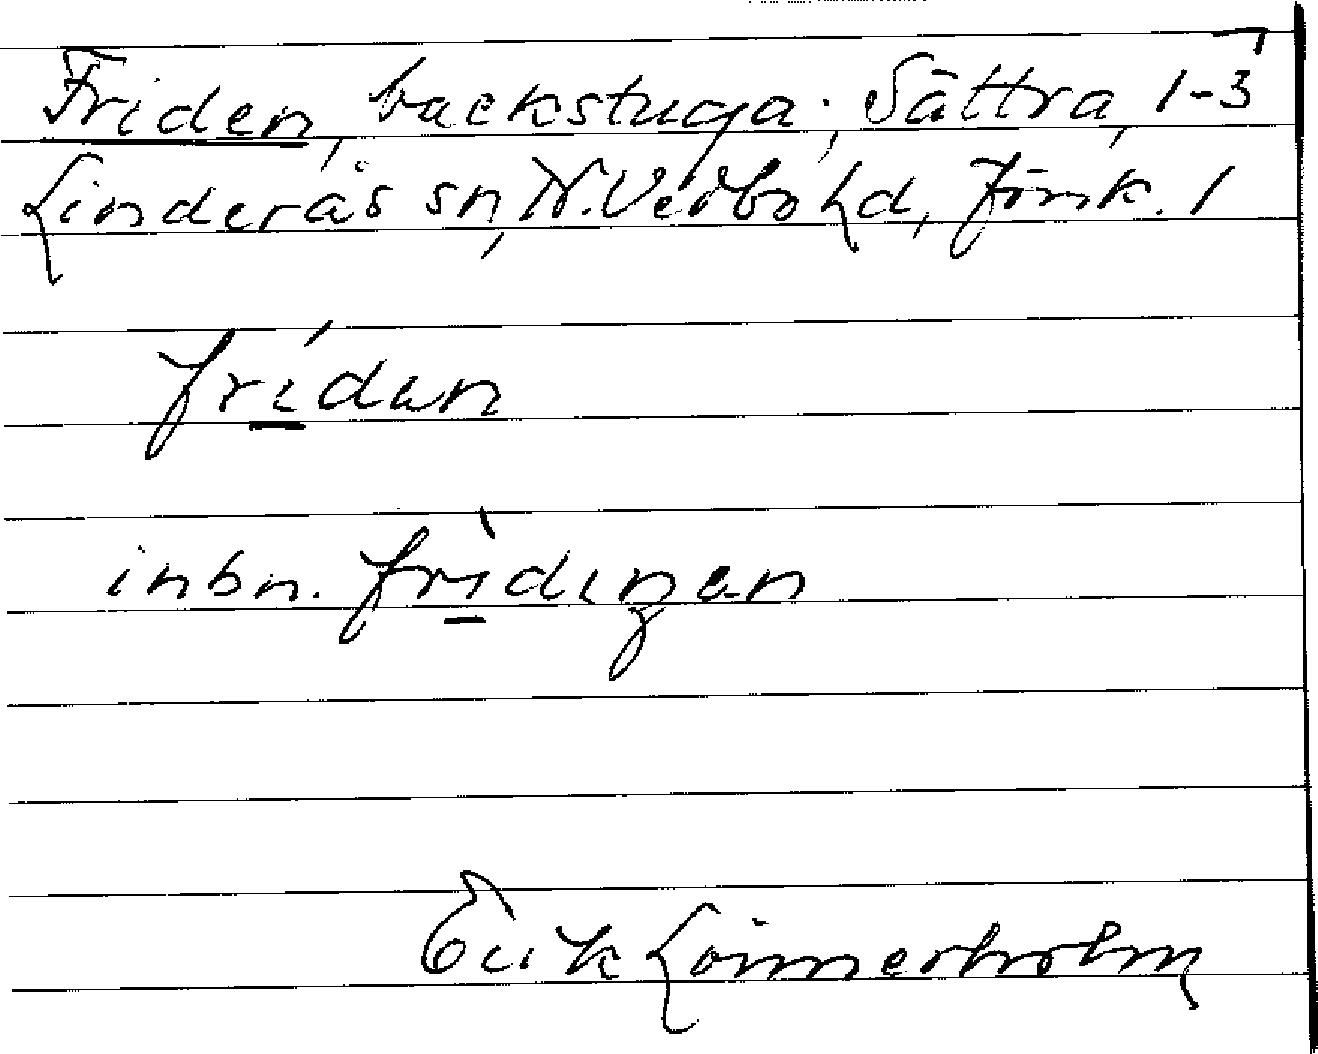 Friden, backstuga; Sättra, 1-3
Linderås sn, N. Vedbo hd, Jönk. l
fri´dan
inbn. fri`dıŋan
Erik Lönnerholm